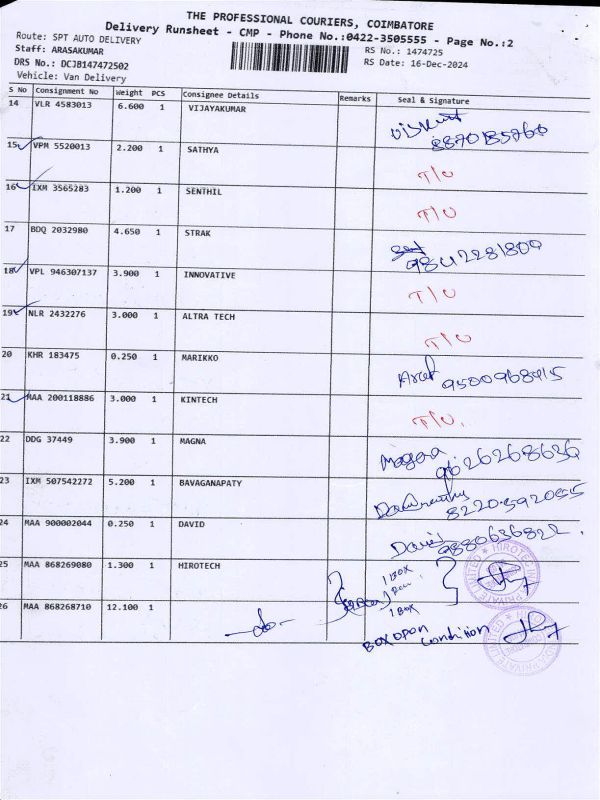 THE PROFESSIONAL COURIERS, COIMBATORE
Delivery Runsheet - CMP - Phone No.:0422-3505555 - Page No.:2
Route: SPT AUTO DELIVERY
Staff: ARASAKUMAR
RS No.: 1474725
DRS No.: DCJB147472502
RS Date: 16-Dec-2024
Vehicle: Van Delivery
S No Consignment No Weight PCS Consignee Details Remarks Seal & Signature
14 VLR 4583013 6.600 1 VIJAYAKUMAR
15 VPM 5520013 2.200 1 SATHYA T/O
16 IXM 3565283 1.200 1 SENTHIL T/O
17 BDQ 2032980 4.650 1 STRAK
18 VPL 946307137 3.900 1 INNOVATIVE T/O
19 NLR 2432276 3.000 1 ALTRA TECH T/O
20 KHR 183475 0.250 1 MARIKKO
21 MAA 200118886 3.000 1 KINTECH T/O.
22 DDG 37449 3.900 1 MAGNA Magna
23 IXM 507542272 5.200 1 BAVAGANAPATY
24 MAA 900002044 0.250 1 DAVID David 9880636822.
25 MAA 868269080 1.300 1 HIROTECH 1 BOX
26 MAA 868268710 12.100 1 -do- 1 BOX
BOX OPON Condition